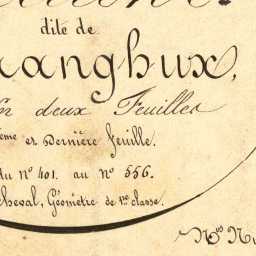 dite de
ranghux,
en deux Feuilles
ème et Dernière feuille.
du N° 401. au N° 556.
Cheval, Géomètre de 1re classe.
Nos